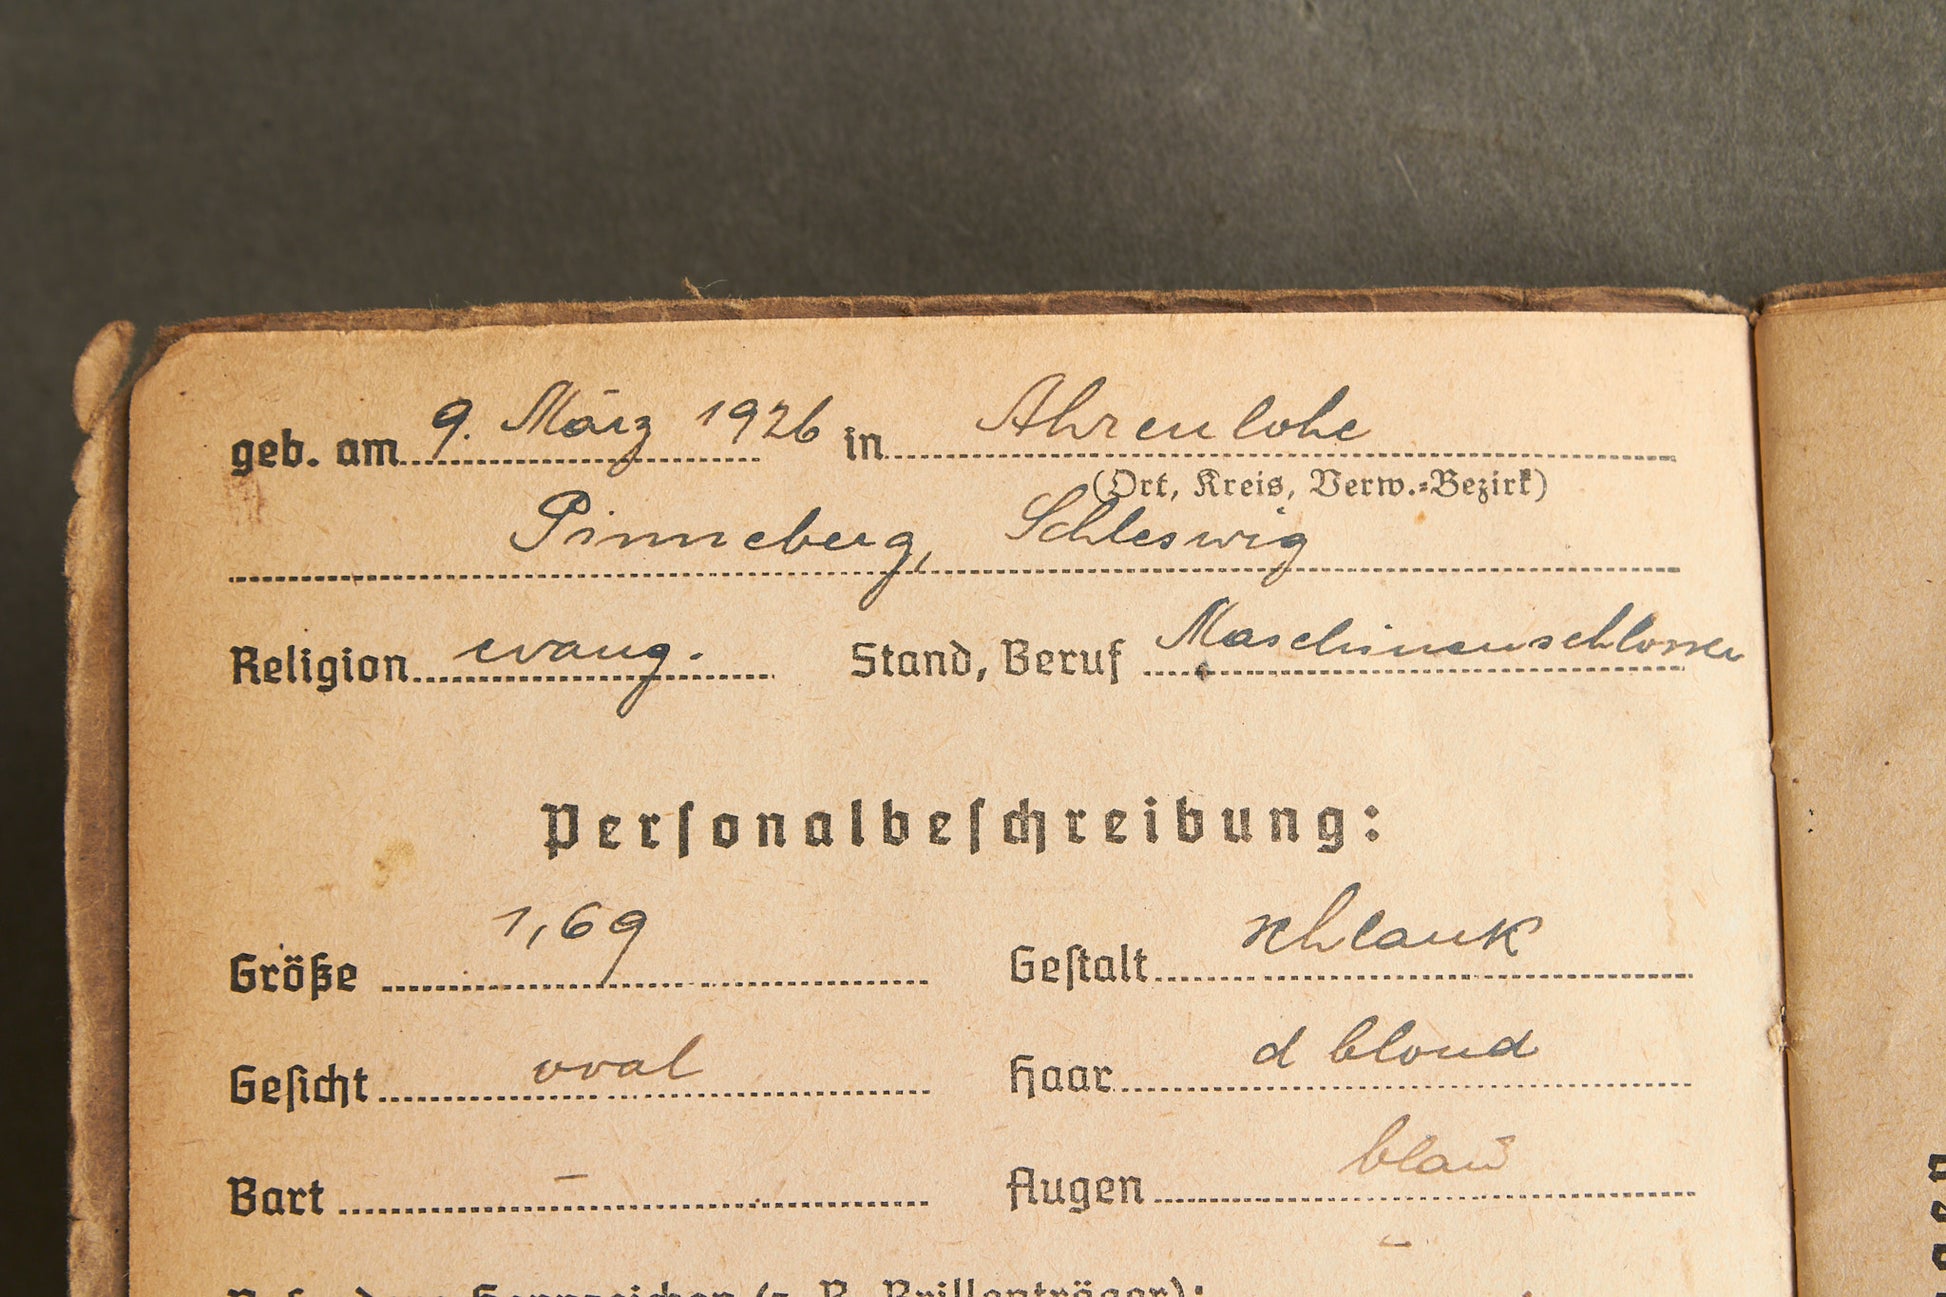 geb. am 9. März 1926 in Ahrenlohe
(Ort, Kreis, Verw.-Bezirk)
Pinneberg, Schleswig
Religion evang. Stand, Beruf Maschinenschlosser
Personalbeschreibung:
Größe 1,69 Gestalt schlank
Gesicht oval Haar d blond
Bart – Augen blau
–
Besondere Kennzeichen (z. B. Brillenträger):